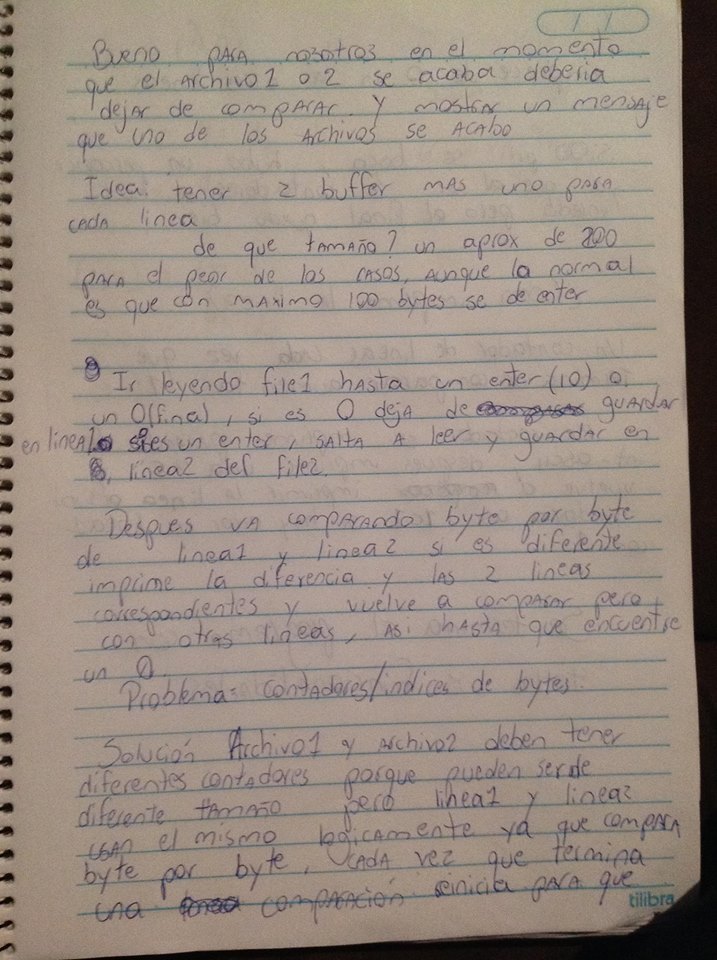 Bueno para nosotros en el momento
que el Archivo1 o 2 se acaba deberia
dejar de comparar y mostrar un mensaje
que uno de los Archivos se Acabo
Idea: tener 2 buffer mas uno para
cada linea
de que tamaño? un aprox de 200
para el peor de los casos, aunque lo normal
es que con maximo 100 bytes se de enter
Ir leyendo file1 hasta un enter (10) o
un 0(final), si es 0 deja de guardar
en linea1 si es un enter, salta a leer y guardar en
linea2 del file2.
Despues va comparando byte por byte
de linea1 y linea2 si es diferente
imprime la diferencia y las 2 lineas
correspondientes y vuelve a comparar pero
con otras lineas, asi hasta que encuentre
un 0.
Problema: contadores/indices de bytes.
Solución Archivo1 y Archivo2 deben tener
diferentes contadores porque pueden ser de
diferente tamaño pero linea1 y linea2
usan el mismo logicamente ya que compara
byte por byte, cada vez que termina
una comparación reinicia para que
tilibra